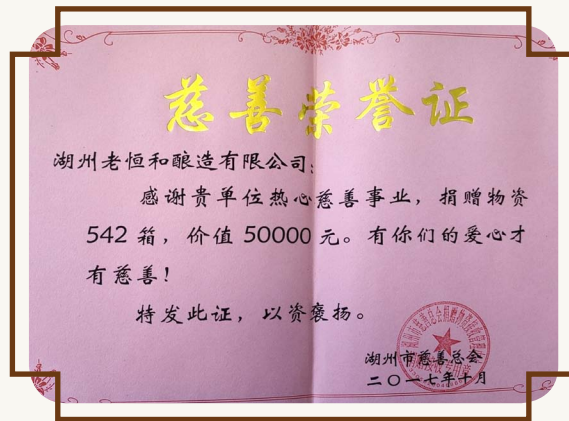 慈善荣誉证
湖州老恒和酿造有限公司:
感谢贵单位热心慈善事业，捐赠物资
542 箱，价值 50000 元。有你们的爱心才
有慈善！
特发此证，以资褒扬。
湖州市慈善总会
二〇一七年十月